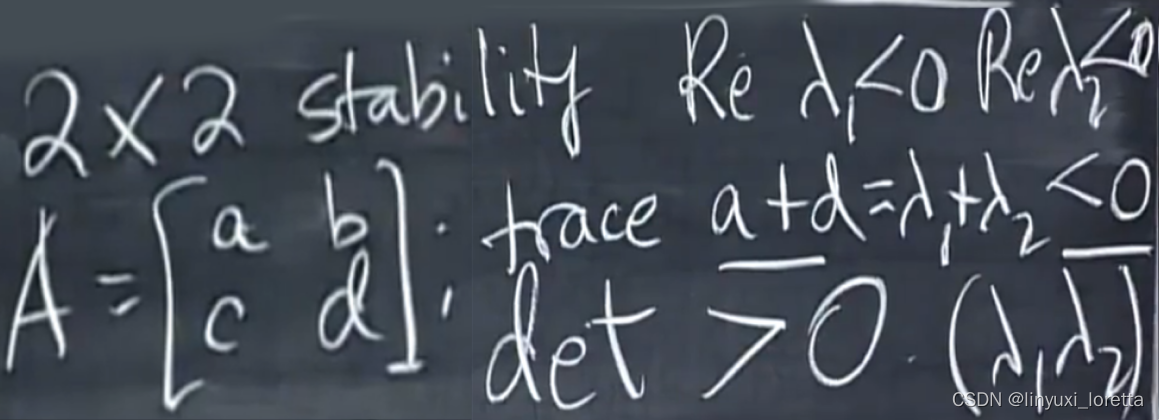 2×2 stability Re λ₁<0 Re λ₂<0
A = [a b; trace a+d=λ₁+λ₂ <0
c d] det >0. (λ₁λ₂)
CSDN @linyuxi_loretta